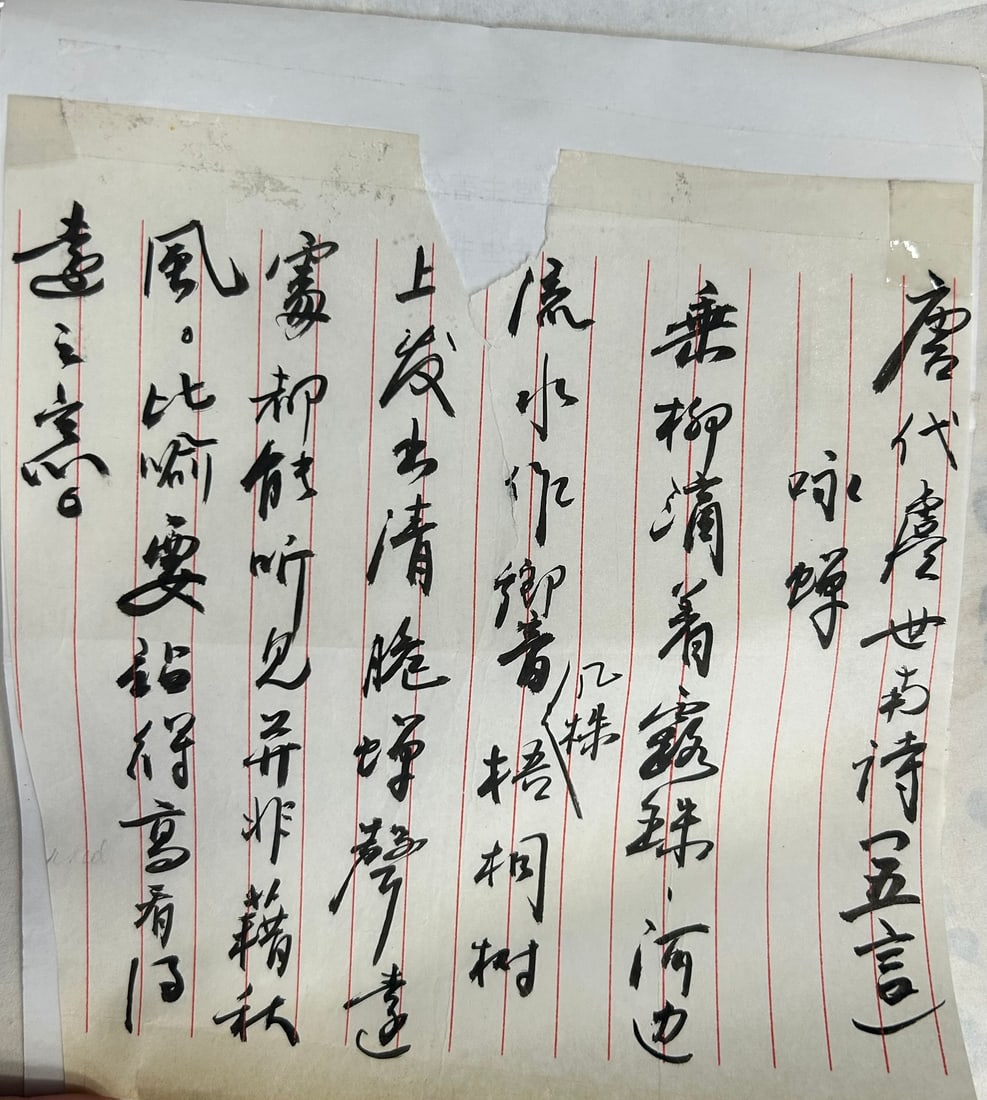 唐代虞世南诗【五言】
咏蝉
垂柳滴着露珠、河边
流水作響几株梧桐树
上发出清脆蝉聲远
處都能听见并非藉秋
風。比喻要站得高看得
遠之意。